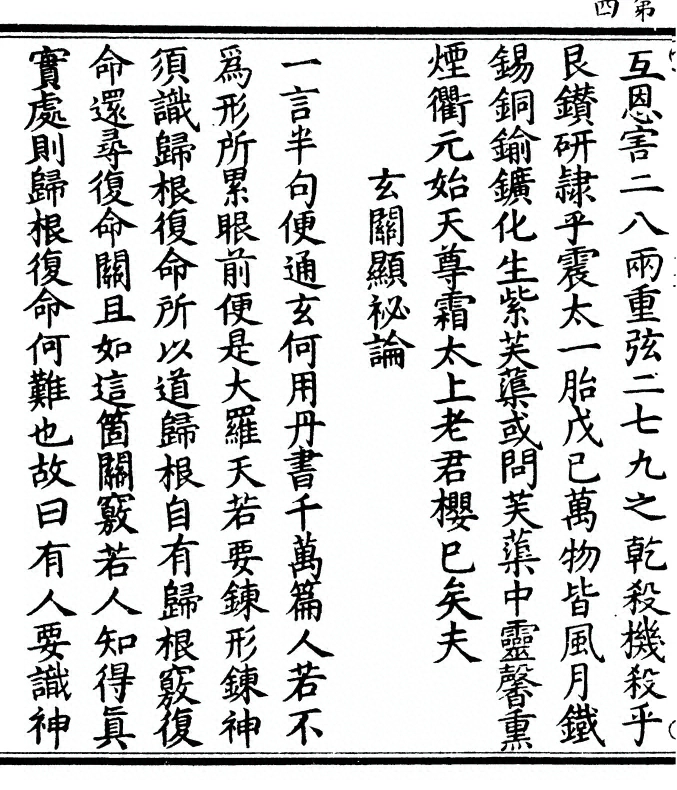 第四
互恩害二八兩重弦二七九之乾殺機殺乎
艮鑚研隷乎震太一胎戊巳萬物皆風月鐵
錫銅鍮鑛化生紫芙蕖或問芙蕖中靈馨熏
煙衢元始天尊霜太上老君櫻巳矣夫
玄關顯祕論
一言半句便通玄何用丹書千萬篇人若不
爲形所累眼前便是大羅天若要鍊形鍊神
須識歸根復命所以道歸根自有歸根竅復
命還尋復命關且如這箇關竅若人知得眞
實處則歸根復命何難也故曰有人要識神